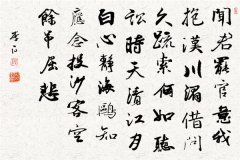 聞君罷官意我
抱漢川湄借問
久疏索何如聽
訟時天清江月
白心靜海鷗知
應念投沙客空
餘吊屈悲